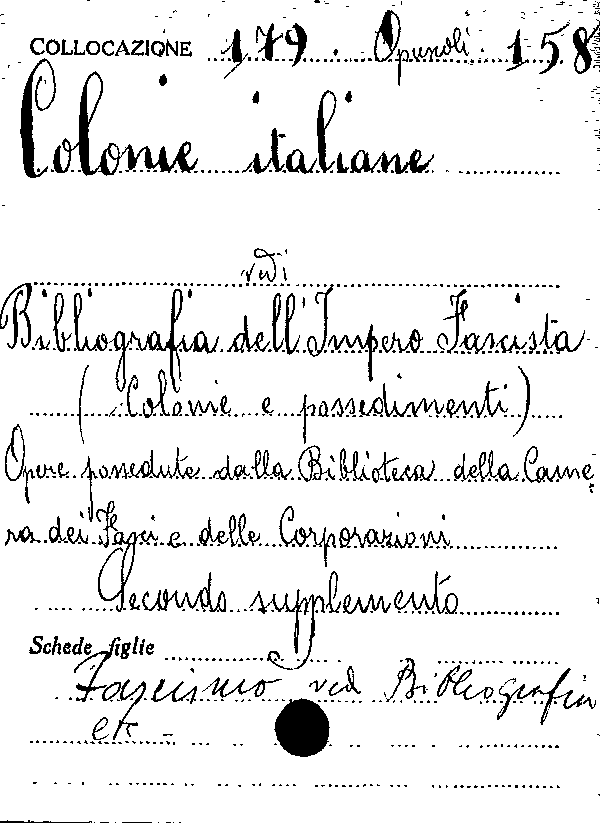 COLLOCAZIONE 179. Opuscoli. 158
Colonie italiane
vedi
Bibliografia dell'Impero Fascista
( Colonie e possedimenti )
Opere possedute dalla Biblioteca della Came
ra dei Fasci e delle Corporazioni
Secondo supplemento
Schede figlie
Fascismo ved Bibliografia
etc -